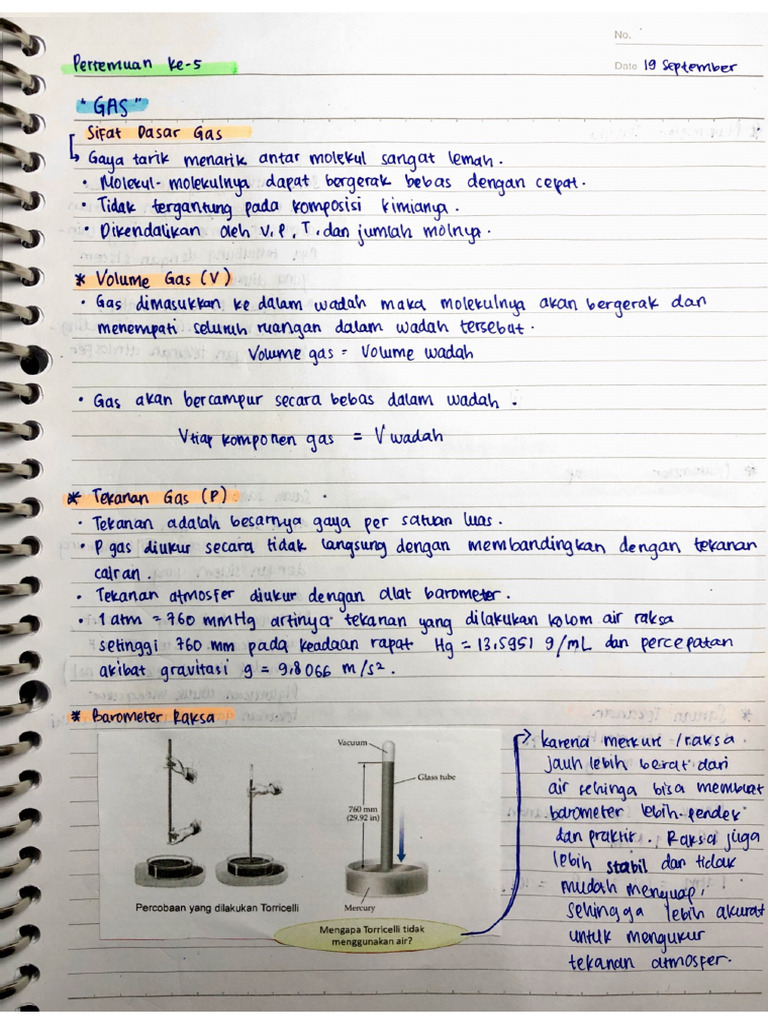 No.
Pertemuan ke-5
Date 19 September
"GAS"
Sifat Dasar Gas
Gaya tarik menarik antar molekul sangat lemah.
• Molekul-molekulnya dapat bergerak bebas dengan cepat.
• Tidak tergantung pada komposisi kimianya.
• Dikendalikan oleh V, P, T, dan jumlah molnya.
* Volume Gas (V)
• Gas dimasukkan ke dalam wadah maka molekulnya akan bergerak dan
menempati seluruh ruangan dalam wadah tersebut.
Volume gas = Volume wadah
• Gas akan bercampur secara bebas dalam wadah.
V tiap komponen gas = V wadah
* Tekanan Gas (P)
• Tekanan adalah besarnya gaya per satuan luas.
• P gas diukur secara tidak langsung dengan membandingkan dengan tekanan
cairan.
• Tekanan atmosfer diukur dengan alat barometer.
• 1 atm = 760 mmHg artinya tekanan yang dilakukan kolom air raksa
setinggi 760 mm pada keadaan rapat Hg = 13,5951 g/mL dan percepatan
akibat gravitasi g = 9,8066 m/s².
* Barometer Raksa
Vacuum
Glass tube
760 mm
(29.92 in)
Mercury
Percobaan yang dilakukan Torricelli
Mengapa Torricelli tidak
menggunakan air?
karena merkuri /raksa
jauh lebih berat dari
air sehinga bisa membuat
barometer lebih pendek
dan praktir. Raksa juga
lebih stabil dan tidak
mudah menguap,
sehingga lebih akurat
untuk mengukur
tekanan atmosfer.